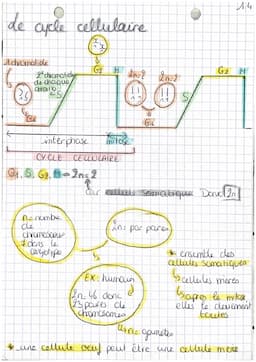 1.4
le cycle cellulaire
G2 M 2n=2 G2 M
2 chromatides
de chaque
S S
G1 G1
interphase
CYCLE CELLULAIRE
G1, S, G2, M = 2n=2
Car cellule somatique Donc 2n
n: nombre
de
chromosomes
dans le
caryotype
2n: par paires
EX: humain
2n: 46 donc
23 paires de
chromosomes
n: gamètes
* ensemble des
cellules somatiques
cellules mères
après la mitose
elles le deviennent
toutes
* une cellule oeuf peut être une cellule mère